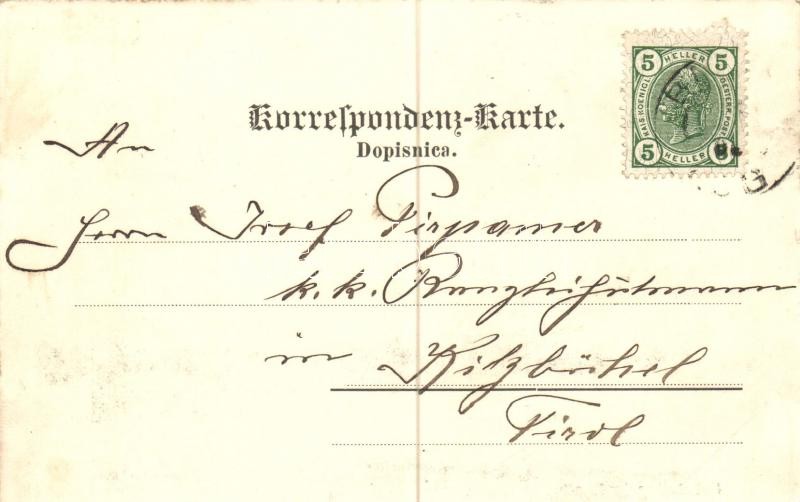 Korrespondenz-Karte.
Dopisnica.
5 HELLER 5
KAIS.KOENIGL. OESTERR.POST
5 HELLER
An
Herrn Josef Pirpamer
k. k.
in Kitzbühel
Tirol